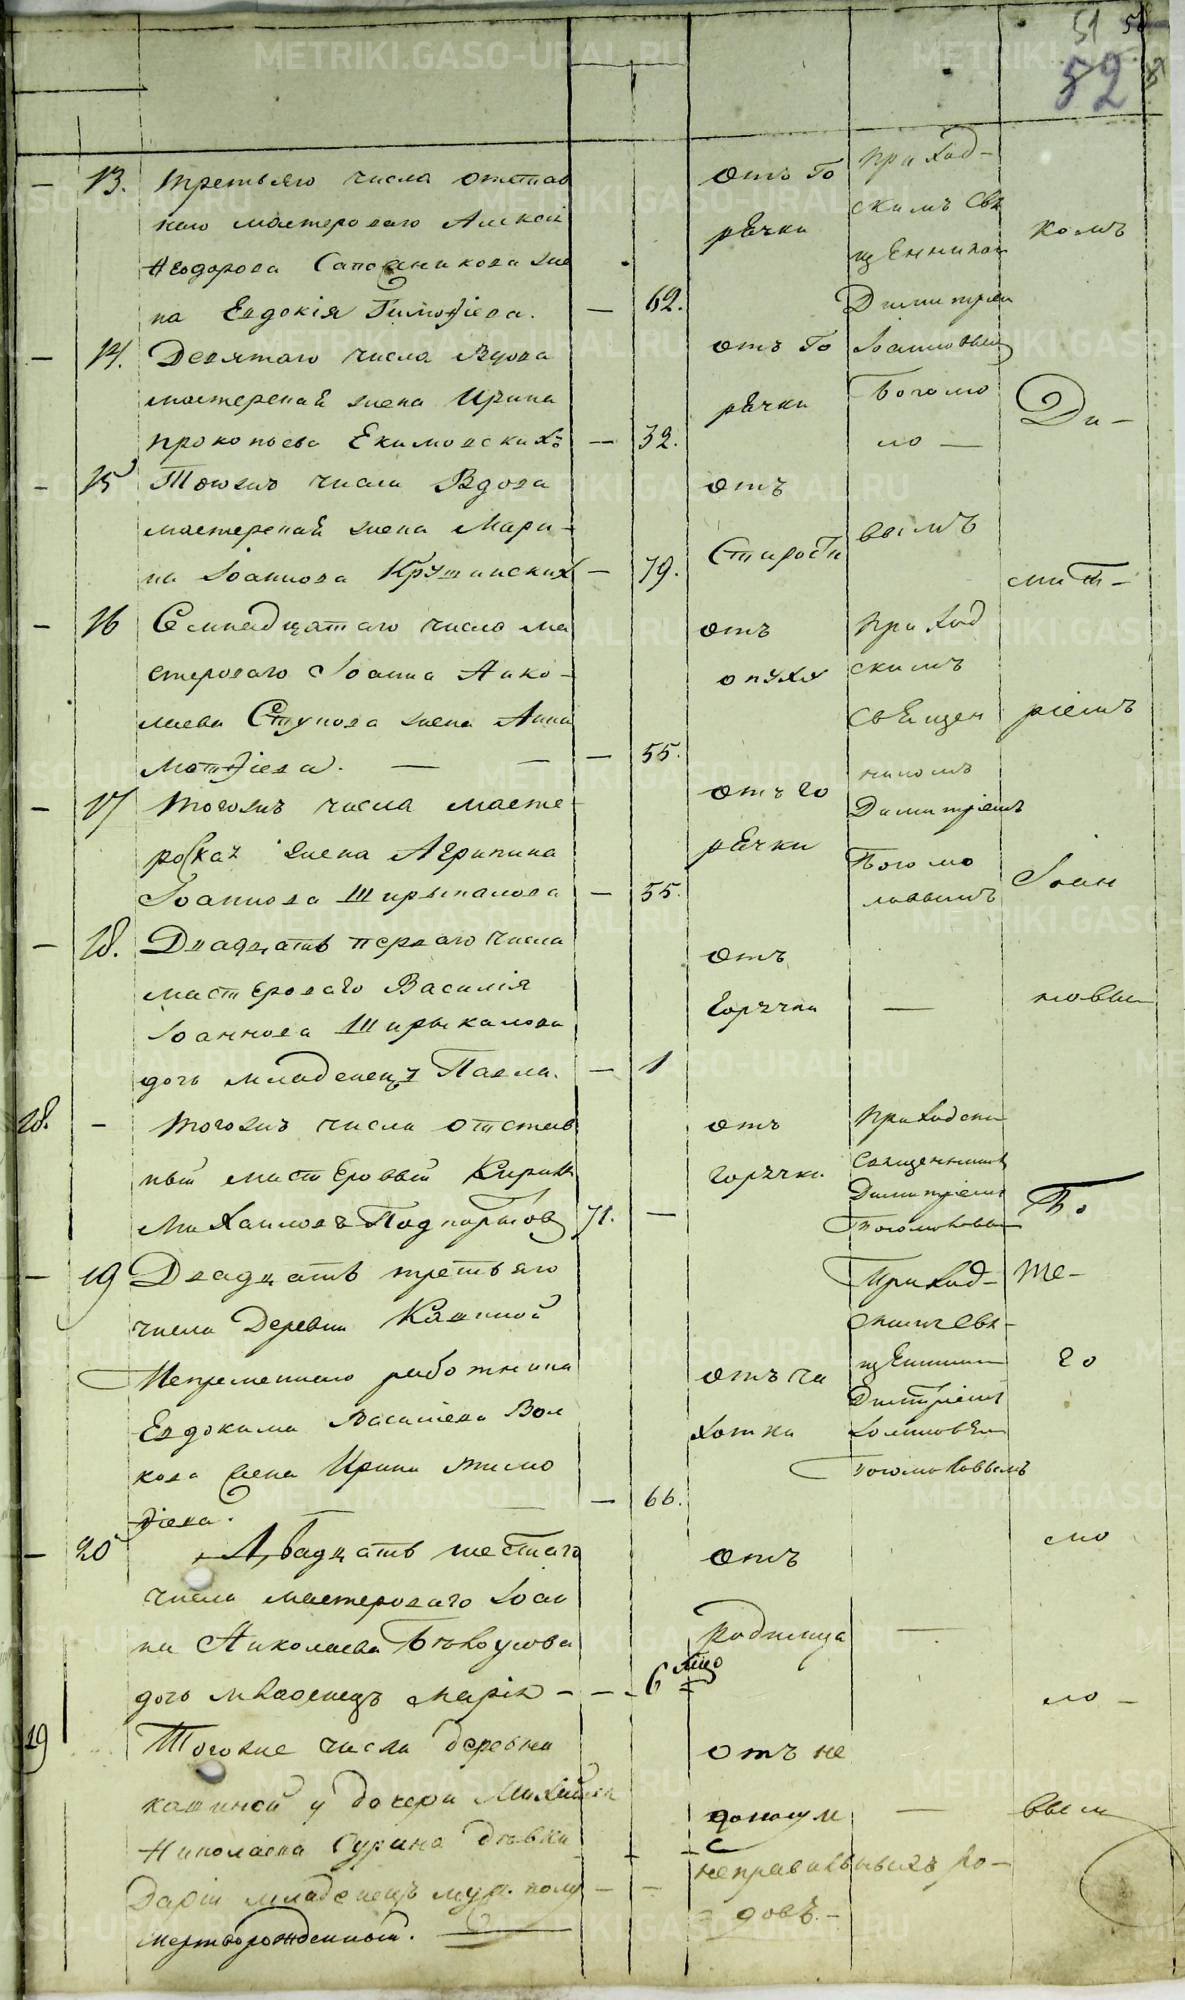 51
52
13. третьяго числа отстав
наго мастероваго Алексѣй
Ѳеодорова Сапожникова же
на Евдокія Тимоѳіева. — 62.
отъ го
рячки
приход-
скимъ Свя
щенникомъ
Димитріем
Іоанновым
Богомо
ло —
вымъ
комъ
14. Девятаго числа Вдова
мастерскай жена Ирина
прокопьева Екимовскихъ — 32.
отъ го
рячки
Ди-
15 Тогожъ числа Вдова
мастерскай жена Мари-
на Іоаннова Крутинских — 79.
отъ
Старости
мит-
16 Семнадцатаго числа ма
стероваго Іоанна Нико-
лаева Ступова жена Анна
Матѳіева. — — — 55.
отъ
опухи
приход
скимъ
священ
никомъ
Димитріемъ
Богомо
ловымъ
ріемъ
17 Тогожъ числа масте-
рскаг жена Агрипина
Іоаннова Ширыкалова — 55.
отъ го
рячки
Іоан
18. Двадцать перваго числа
мастероваго Василія
Іоаннова Ширыкалова
дочь младенецъ Павла. — 1
отъ
горячки
—
новым
18. — тогожъ числа отстав
ный мастеровый Кирилъ
Михаиловъ Подкорытов 71. —
отъ
горячки
Приходским
Священником
Димитріем
Богомоловым
Бо
19 Двадцать третьяго
числа Деревни Кашиной
Непременнаго работника
Евдокима Васильева Вол
кова жена Ирина Тимо
ѳіева. — 66.
отъ ча
хотки
Приход-
скимъ Свя-
щенником
Димитріем
Іоанновым
Богомоловымъ
го
20 Двадцать шестаго
числа мастероваго Іоан
на Николаева Бѣлоусова
дочь младенецъ Марія — — 6
отъ
родимца
—
мо
19 Тогоже числа деревни
кашиной у дочери Михайла
Николаева Сурина Дѣвки
Даріи младенецъ муж. полу — —
мертворожденный. —
отъ не
доношен
неправильныхъ ро-
довъ. —
—
ло —
вым
METRIKI.GASO-URAL.RU